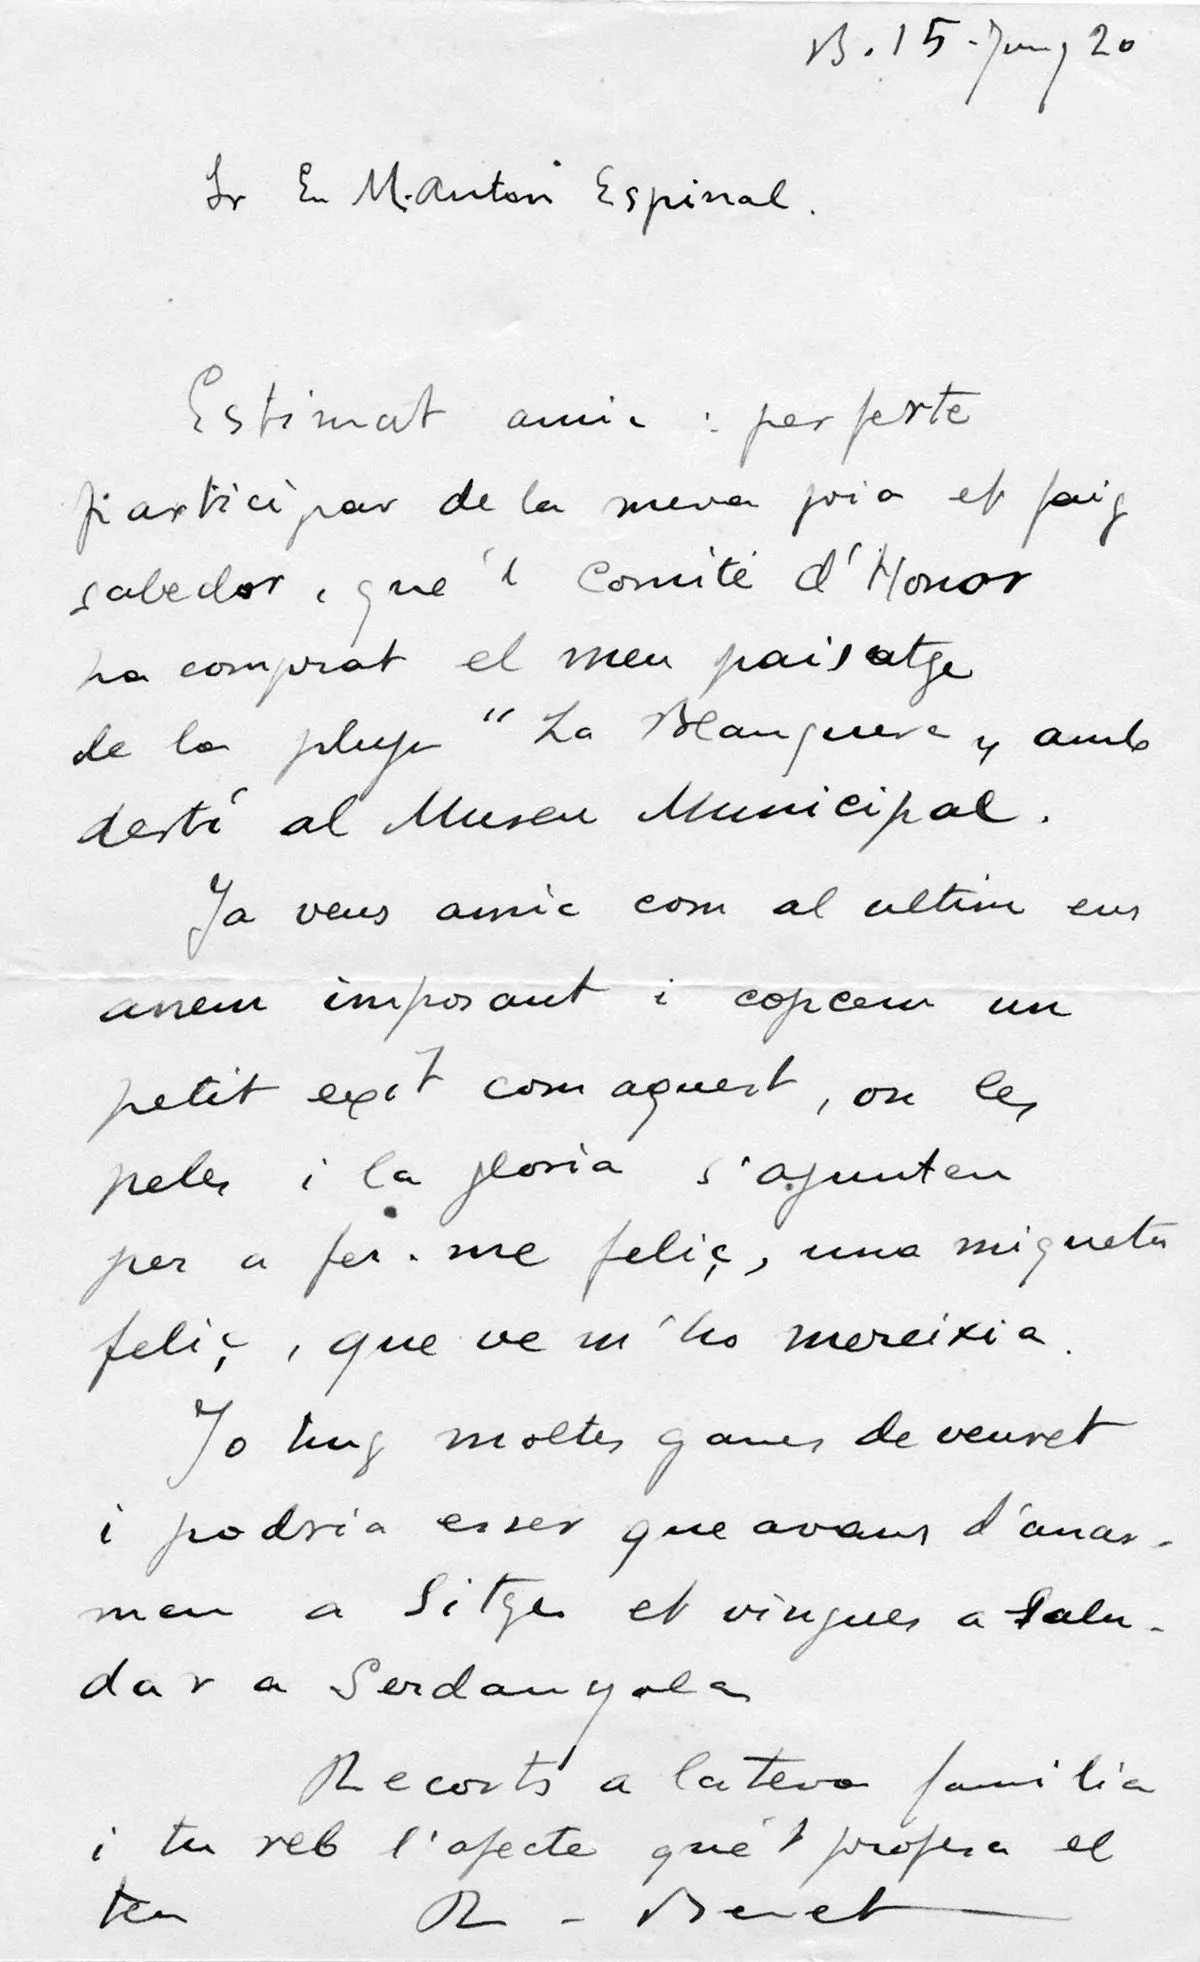 B. 15-Juny 20
Sr En M. Anton Espinal.
Estimat amic : per ferte
participar de la meva joia et faig
sabedor, que'l Comité d'Honor
ha comprat el meu paisatge
de la pluja "La Manguera", amb
destí al Museu Municipal.
Ja veus amic com al ultim ens
anem imposant i copcem un
petit exit com aquest, on les
peles i la gloria s'ajunten
per a fer-me feliç, una miqueta
feliç, que ve m'ho mereixia.
Jo ting moltes ganes de veuret
i podria esser que avans d'anar-
men a Sitges et vingues a salu-
dar a Serdanyola
Recorts a la teva familia
i tu reb l'afecte que't profesa el
teu R-Benet